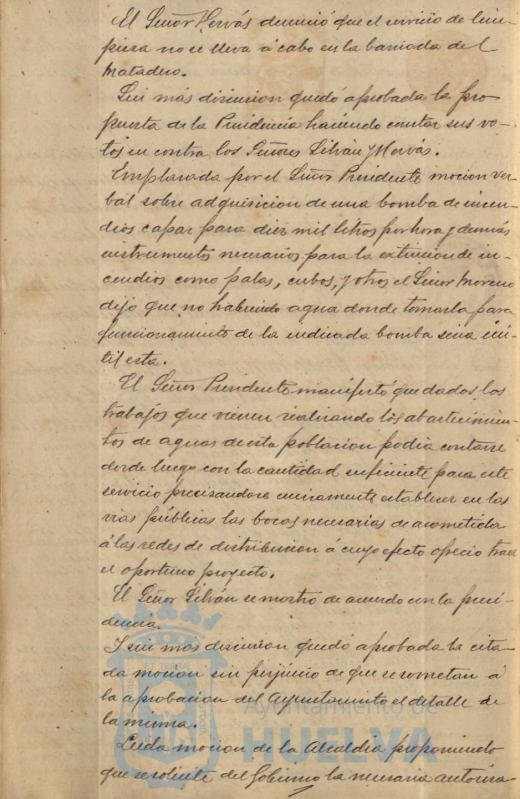 El Señor Hervás denunció que el servicio de lim-
pieza no se lleva á cabo en la barriada del
Matadero.
Sin más discusion quedó aprobada la pro
puesta de la Presidencia haciendo constar sus vo-
tos en contra los Señores Silván y Hervás.
Emplanada por el Señor Presidente mocion ver
bal sobre adquisicion de una bomba de incen-
dios capaz para diez mil litros por hora y demás
instrumentos necesarios para la extincion de in-
cendios como palas, cubos, y otros el Señor Moreno
dijo que no habiendo agua donde tomarla para
funcionamiento de la indicada bomba seria inú-
til esta.
El Señor Presidente manifestó que dados los
trabajos que vienen realizando los abastecimien-
tos de aguas de esta poblacion podia contarse
desde luego con la cantidad suficiente para este
servicio precisandose unicamente establecer en las
vias públicas las bocas necesarias de acometida
á las redes de distribucion á cuyo efecto ofrecio traer
el oportuno proyecto.
El Señor Silván se mostro de acuerdo con la presi-
dencia.
Y sin más discusion quedó aprobada la cita
da mocion sin perjuicio de que se sometan á
la aprobacion del Ayuntamiento el detalle de
la misma.
Leida mocion de la Alcaldia proponiendo
que se solicite del Gobierno la necesaria autoriza-
Ayuntamiento de
HUELVA